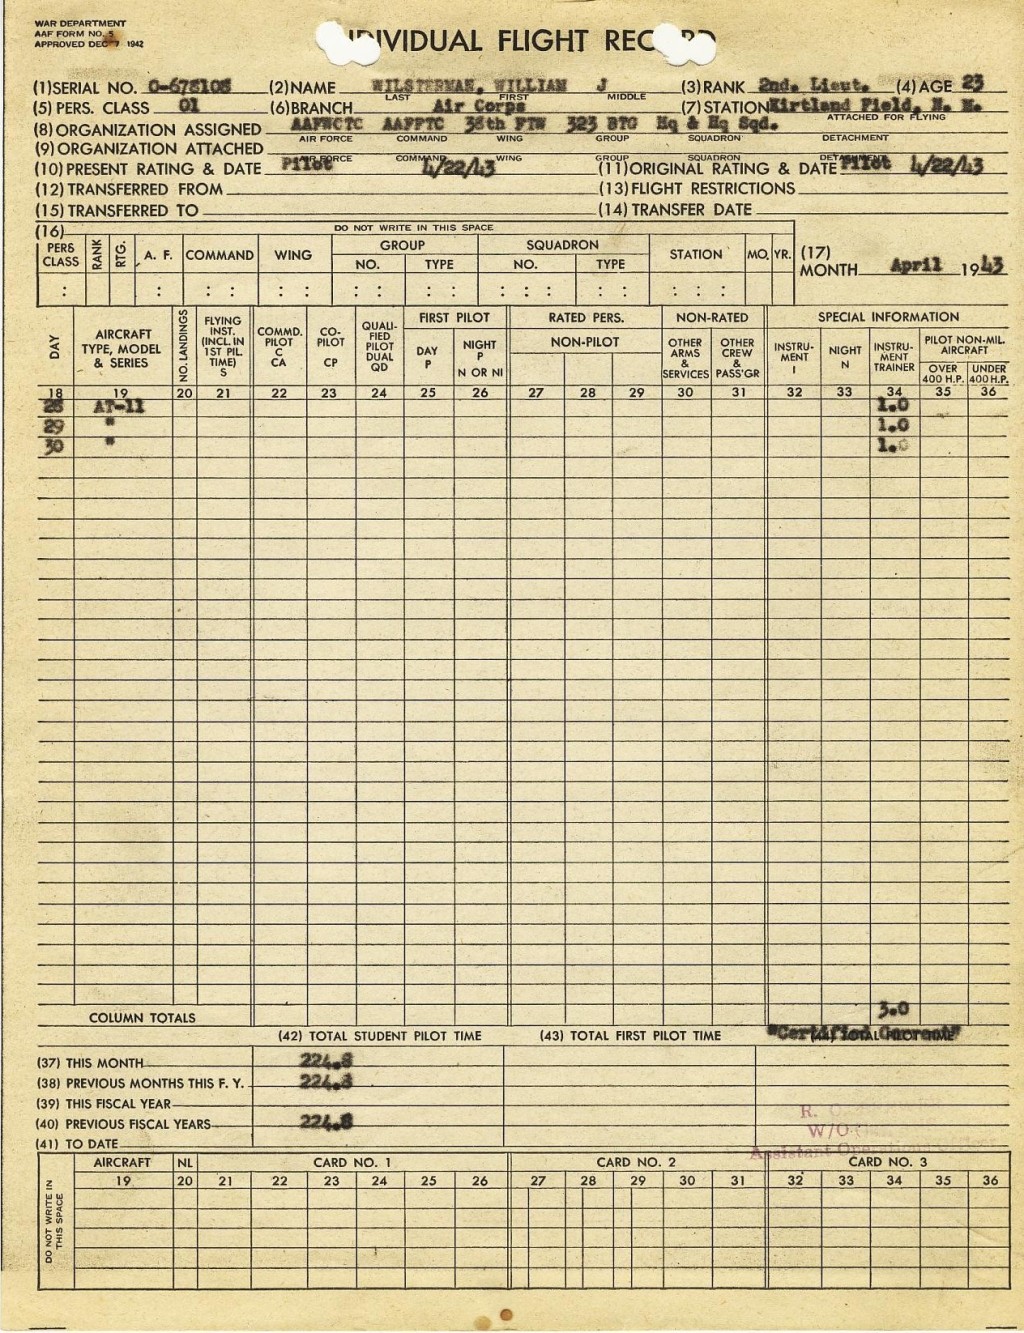 WAR DEPARTMENT
AAF FORM NO. 5
APPROVED DEC 7 1942
INDIVIDUAL FLIGHT RECORD
(1) SERIAL NO. O-678108 (2) NAME WILSTERMAN, WILLIAM J (3) RANK 2nd. Lieut. (4) AGE 23
LAST FIRST MIDDLE
(5) PERS. CLASS 01 (6) BRANCH Air Corps (7) STATION Kirtland Field, N. M.
ATTACHED FOR FLYING
(8) ORGANIZATION ASSIGNED AAFWCTC AAFFTC 38th FTW 323 BTG Hq & Hq Sqd.
AIR FORCE COMMAND WING GROUP SQUADRON DETACHMENT
(9) ORGANIZATION ATTACHED
AIR FORCE COMMAND WING GROUP SQUADRON DETACHMENT
(10) PRESENT RATING & DATE Pilot 4/22/43 (11) ORIGINAL RATING & DATE Pilot 4/22/43
(12) TRANSFERRED FROM (13) FLIGHT RESTRICTIONS
(15) TRANSFERRED TO (14) TRANSFER DATE
(16) DO NOT WRITE IN THIS SPACE
PERS CLASS RANK RTG. A. F. COMMAND WING GROUP NO. TYPE SQUADRON NO. TYPE STATION MO. YR. (17) MONTH April 1943
DAY AIRCRAFT TYPE, MODEL & SERIES NO. LANDINGS FLYING INST. (INCL. IN 1ST PIL. TIME) S COMMD. PILOT C CA CO-PILOT CP QUALI-FIED PILOT DUAL QD FIRST PILOT DAY P NIGHT P N OR NI RATED PERS. NON-PILOT NON-RATED OTHER ARMS & SERVICES OTHER CREW & PASS'GR SPECIAL INFORMATION INSTRU-MENT I NIGHT N INSTRU-MENT TRAINER PILOT NON-MIL. AIRCRAFT OVER 400 H.P. UNDER 400 H.P.
18 19 20 21 22 23 24 25 26 27 28 29 30 31 32 33 34 35 36
28 AT-11 1.0
29 " 1.0
30 " 1.0
COLUMN TOTALS 3.0
(42) TOTAL STUDENT PILOT TIME (43) TOTAL FIRST PILOT TIME (44) TOTAL PILOT TIME
"Certified Correct"
(37) THIS MONTH 224.8
(38) PREVIOUS MONTHS THIS F. Y. 224.8
(39) THIS FISCAL YEAR
(40) PREVIOUS FISCAL YEARS 224.8
(41) TO DATE
R.
W/O
Assistant Operations
DO NOT WRITE IN THIS SPACE
AIRCRAFT NL CARD NO. 1 CARD NO. 2 CARD NO. 3
19 20 21 22 23 24 25 26 27 28 29 30 31 32 33 34 35 36